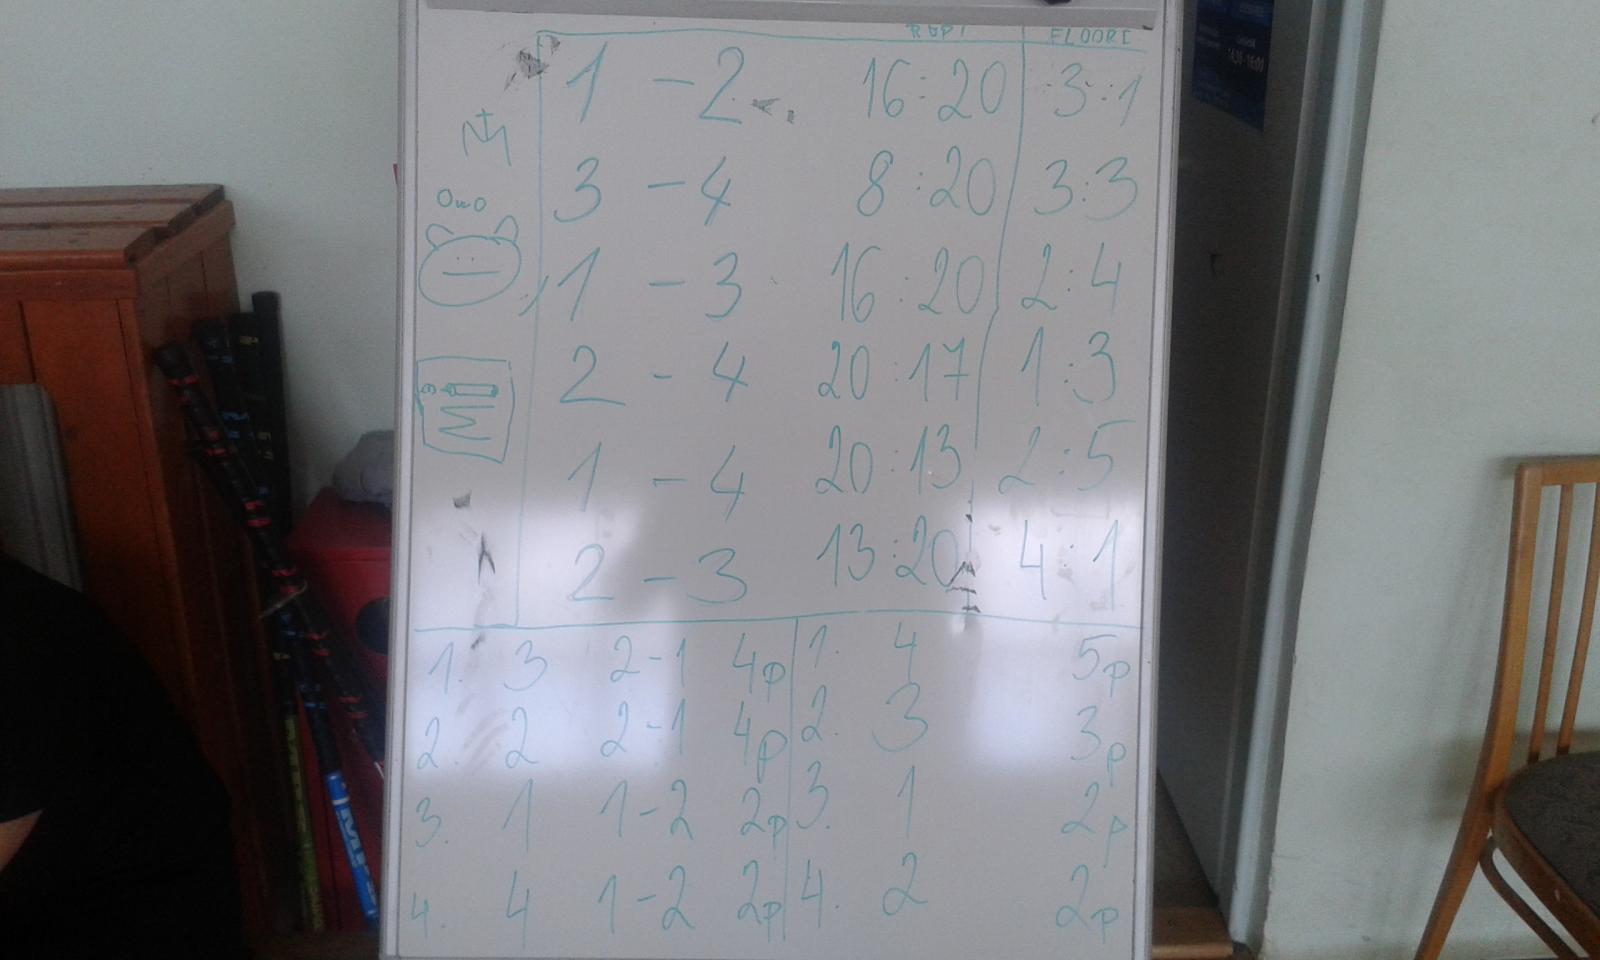 FLOORI
1 - 2 16:20 3:1
3 - 4 8:20 3:3
1 - 3 16:20 2:4
2 - 4 20:17 1:3
1 - 4 20:13 2:5
2 - 3 13:20 4:1
1. 3 2-1 4p 1. 4 5p
2. 2 2-1 4p 2. 3 3p
3. 1 1-2 2p 3. 1 2p
4. 4 1-2 2p 4. 2 2p
OwO